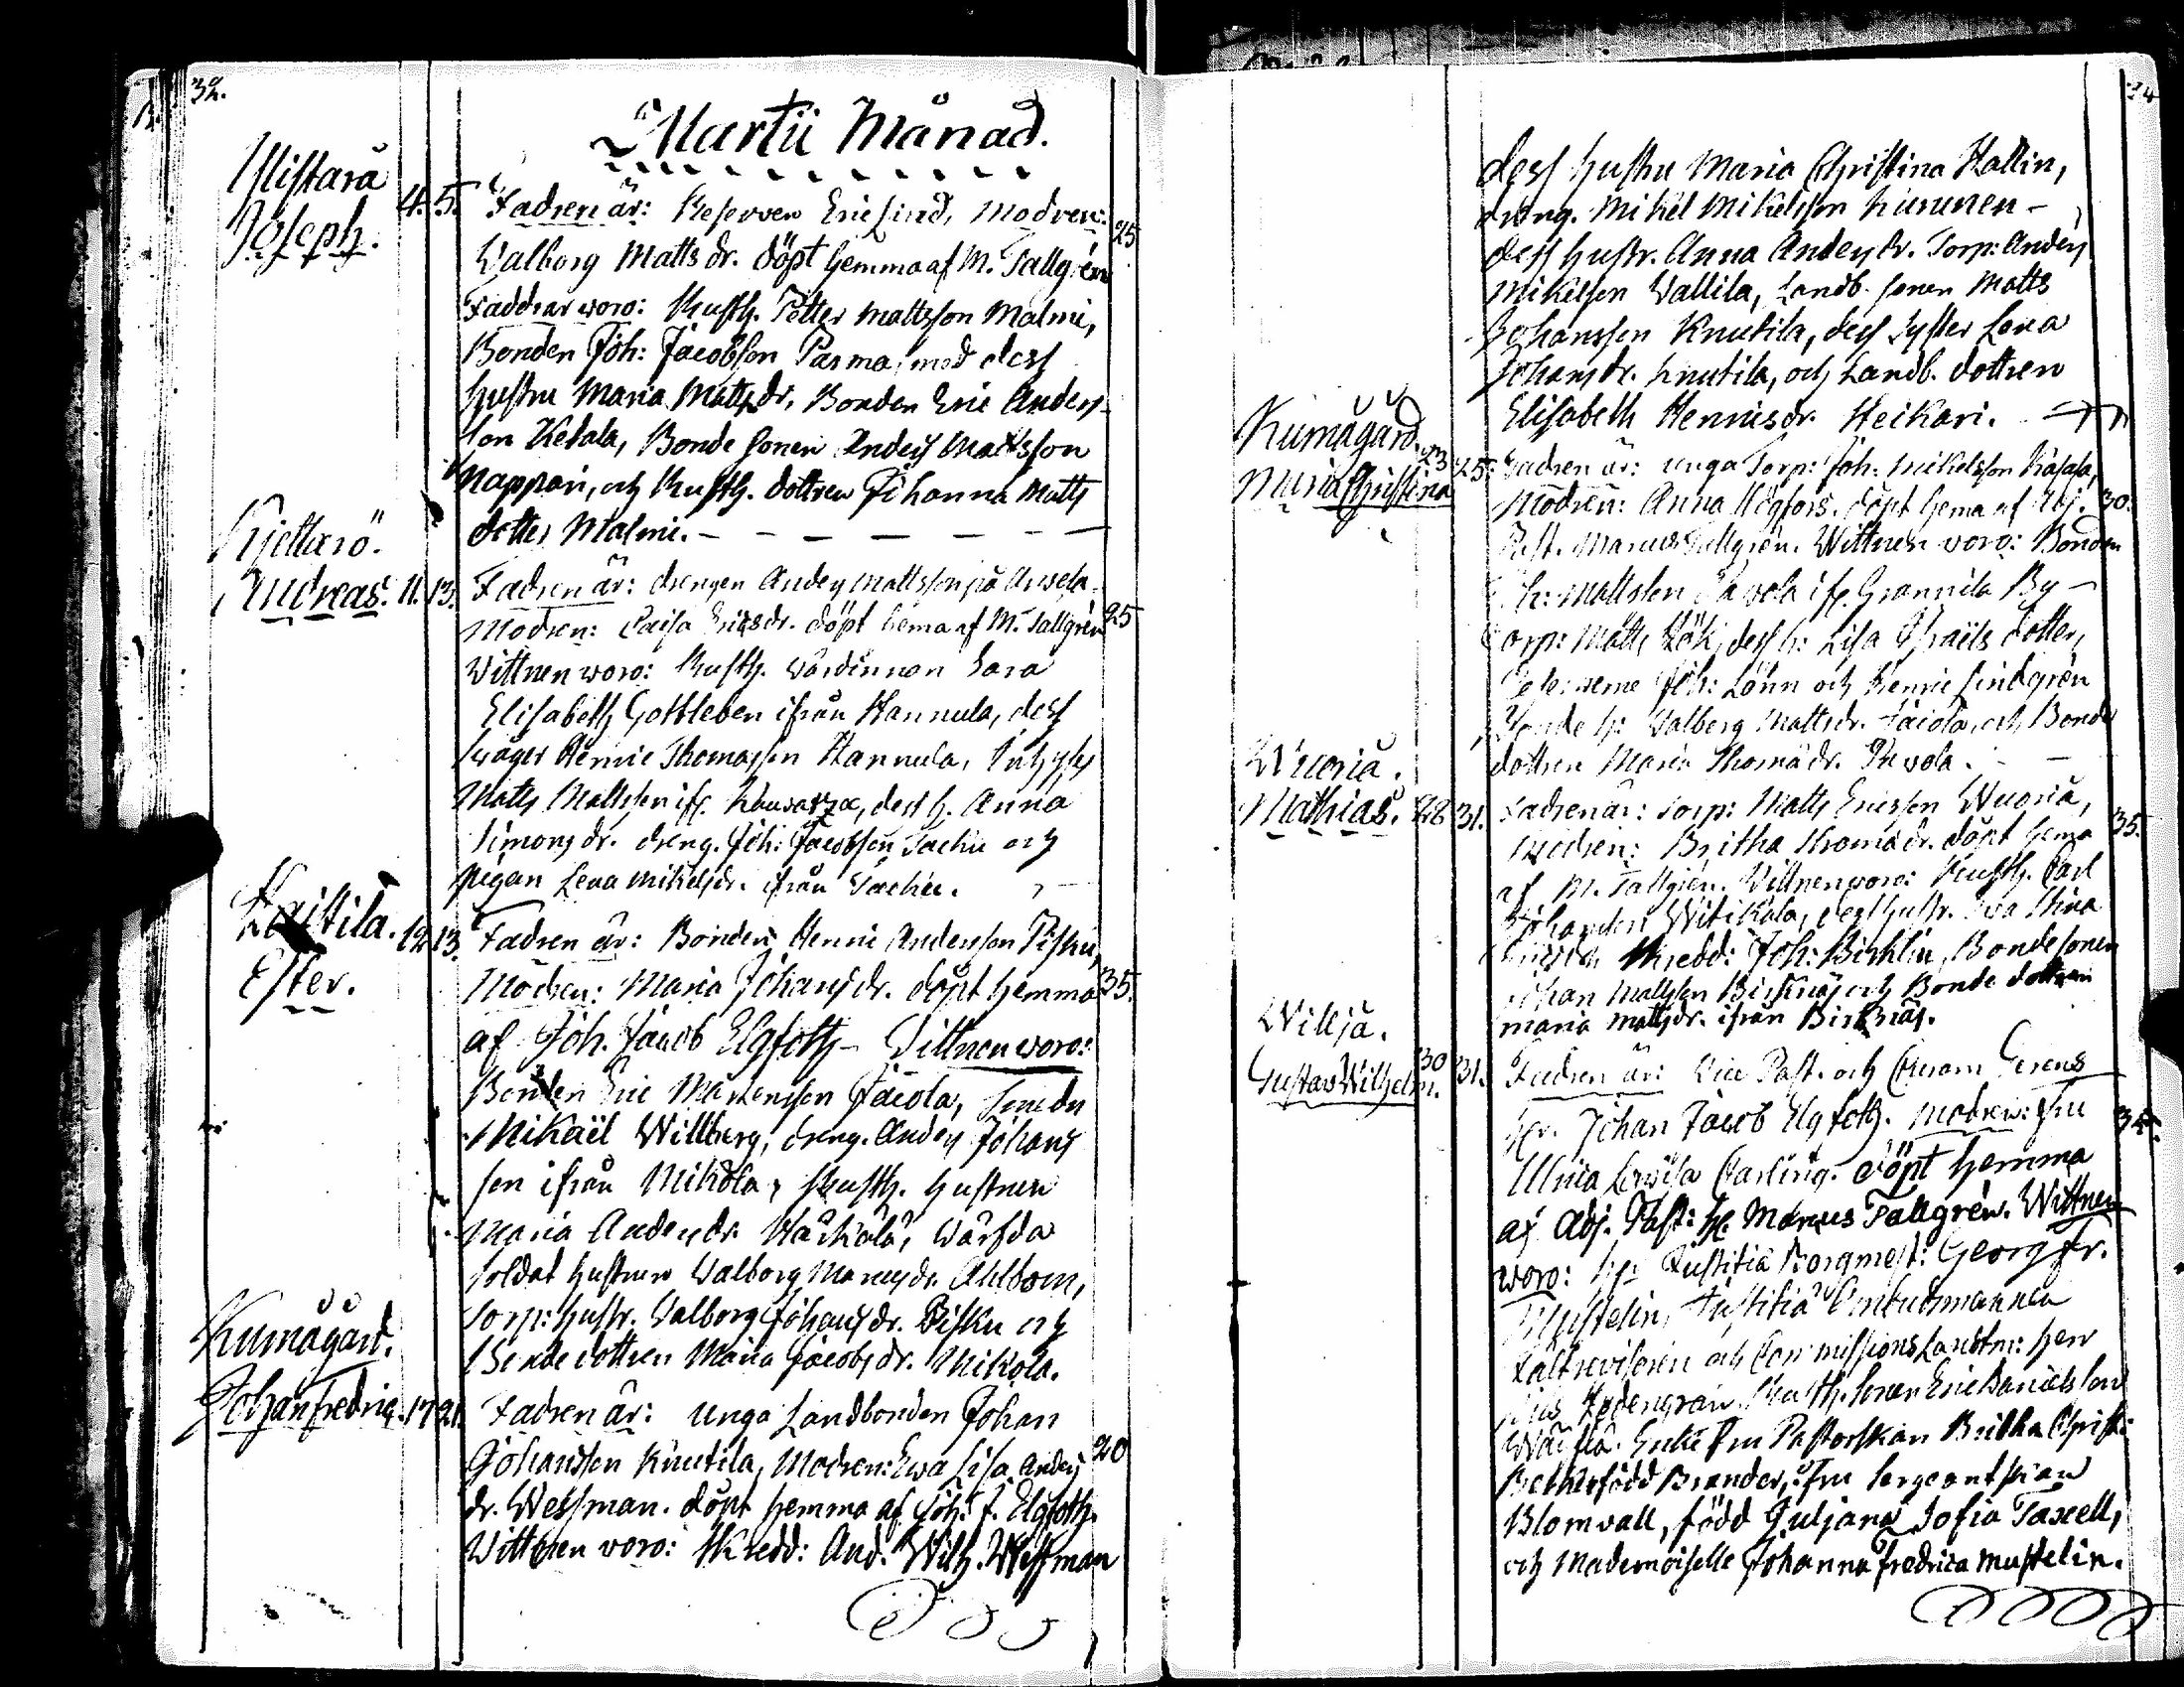 32.
Martii Månad.
Ylistarå
Joseph. 4. 5. Fadren är: Reserven Eric Lind, Modren: 25
Walborg Matts dr. döpt hemma af M. Tallgrén
Faddrar woro: Rusth. Petter Mattsson Malmi,
Bonden Joh: Jacobsson Parma, med dess
hustru Maria Matts dr, Bonden Eric Anders-
son Ketala, Bonde sonen Anders Mattsson
Nappari, och Rusth. dottren Johanna Matts
dotter Malmi. — — — — — —
Kjettarö.
Andreas. 11. 13. Fadren är: drengen Anders Mattsson på Arwela.
Modren: Caisa Ericsdr. döpt hema af M. Tallgrén 25
Wittnen woro: Rusth. wärdinnan Sara
Elisabeth Gottleben ifrån Hannula, dess
swåger Henric Thomasson Hannula,
Matts Mattsson ifr. dess h. Anna
Simons dr. dreng. Joh: Jacobsson Tacku och
pigan Lena Mikelsdr. ifrån Tacku.
Kaitila. 12. 13. Fadren är: Bonden Henric Andersson Pisku,
Ester. Modren: Maria Johans dr. döpt hemma 35.
af Joh. Jacob Elgfoth — Wittnen woro:
Bonden Eric Mårtensson Jacola, Smeden
Mikaël Willberg, dreng. Anders Johans
son ifrån Mikola, Rusth. hustrun
Maria Anders dr. Härkälä, Wärfda
soldat hustrun Walborg Marcus dr. Ahlbom,
Torp: hustr. Walborg Johans dr. Pisku och
Bonde dottren Maria Jacobs dr. Mikola.
Kumogård.
Johan Fredric. 17. 21. Fadren är: unga Landbonden Johan
Johansson Knutila, Modren: Ewa Lisa Anders 20
dr. Wessman. döpt hemma af Joh. J. Elgfoth.
Wittnen woro: Skredd: And. Wilh. Wessman
dess hustru Maria Christina Hallin,
dreng. Mikel Mikelsson Kununen —
dess hustr. Anna Anders dr. Torp: Anders
Mikelsson Wallila, Landb. sonen Matts
Johansson Knutila, dess syster Lena
Johans dr. Knutila, och Landb. dottren
Elisabeth Henricsdr. Heikari.
Kumogård. 23 25. Fadren är: unga Torp: Joh: Mikelsson
Maria Christina Modren: Anna Högfors. döpt hema af Adj. 30.
Past. Marcus Tallgrén. Wittnen woro: Bonden
Joh: Mattsson Pawola ifr. Grannila By —
Torp: Matts Kök, dess h: Lisa Israëls dotter,
Joh: Lönn och Henric Lindgrén
Bonde h: Walborg Mattsdr. Jacola, och Bonde
dottren Maria Thomädr. Pawola. — —
Wuoria.
Mathias. 28 31. Fadren är: Torp: Matts Ericsson Wuoria,
Modren: Britha Thomä dr. döpt hema 35.
af M. Tallgrén. Wittnen woro: Rusth. Carl
Johansson Witikkala, dess hustr. Ewa Stina
Skredd: Joh: Birklin, Bonde sonen
Johan Mattsson Birknäs och Bonde dottren
Maria Matts dr. ifrån Birknäs.
Willja. 30
Gustav Wilhelm. 31. Fadren är: Vice Past. och Curam Gerens
Hr. Johan Jacob Elgfoth. Modren: Fru 34.
Ulrica Lowisa Carling. döpt hemma
af Adj. Past: H. Marcus Tallgrén. Wittnen
woro: Hr Justitiæ Borgmest: Georg Fr.
Mustelin, Justitiæ Ombudsmannen
och Commissions Landtm: herr
Rusth. sonen Eric Danielsson
Enke fru Pastorskan Britha Christ:
född Brander, Fru Sergeantskan
Blomvall, född Juljana Sofia Taxell,
och Mademoiselle Johanna Fredrica Mustelin.